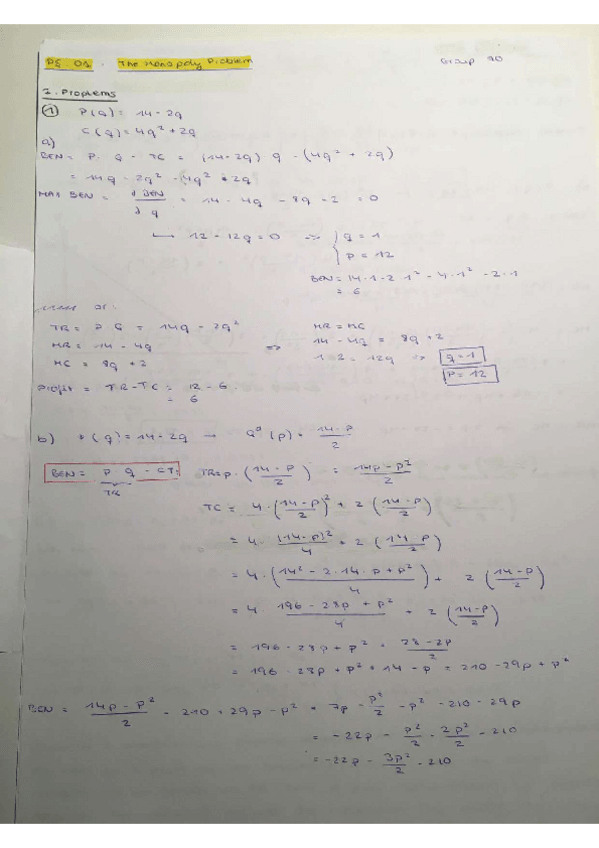 PS 01. The Monopoly Problem
Group 90
2. Problems
① P(q) = 14 - 2q
C(q) = 4q² + 2q
a)
BEN = P · q - TC = (14 - 2q) q - (4q² + 2q)
= 14q - 2q² - 4q² - 2q
MAX BEN = d BEN / d q = 14 - 4q - 8q - 2 = 0
↳ 12 - 12q = 0 => { q = 1
p = 12
BEN = 14·1 - 2·1² - 4·1² - 2·1
= 6
or:
TR = P·q = 14q - 2q²
MR = 14 - 4q
MC = 8q + 2
=>
MR = MC
14 - 4q = 8q + 2
12 = 12q => q = 1
P = 12
Profit = TR - TC = 12 - 6
= 6
b) P(q) = 14 - 2q → Qᴰ(p) = (14 - p)/2
BEN = P · q - CT
TR
TR = p · ((14 - p)/2) = (14p - p²)/2
TC = 4 · ((14 - p)/2)² + 2 ((14 - p)/2)
= 4 · (14 - p)²/4 + 2 ((14 - p)/2)
= 4 · ((14² - 2·14·p + p²)/4) + 2 ((14 - p)/2)
= 4 · (196 - 28p + p²)/4 + 2 ((14 - p)/2)
= 196 - 28p + p² + (28 - 2p)/2
= 196 - 28p + p² + 14 - p = 210 - 29p + p²
BEN = (14p - p²)/2 - 210 + 29p - p² = 7p - p²/2 - p² - 210 - 29p
= -22p - p²/2 - 2p²/2 - 210
= -22p - 3p²/2 - 210